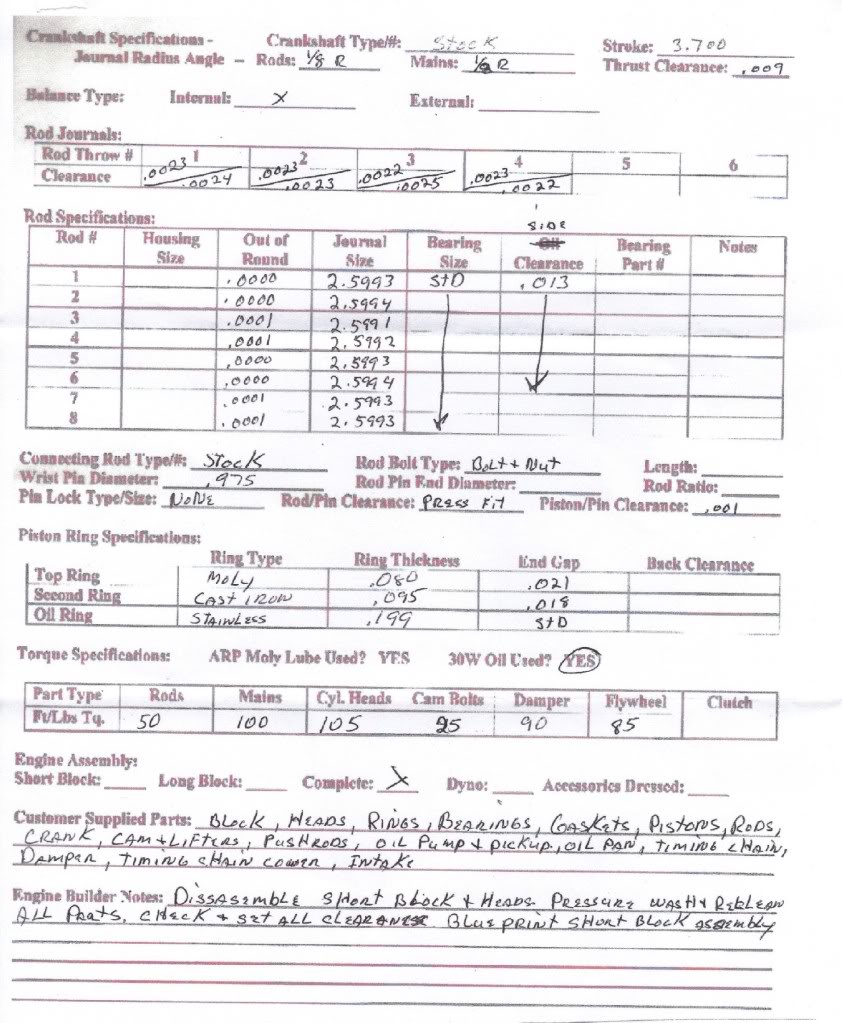 Crankshaft Specifications - Crankshaft Type/#: Stock Stroke: 3.700
Journal Radius Angle – Rods: 1/8 R Mains: 1/8 R Thrust Clearance: .009
Balance Type: Internal: X External:
Rod Journals:
Rod Throw # 1 2 3 4 5 6
Clearance .0023/.0024 .0023/.0023 .0022/.0025 .0023/.0022
Rod Specifications:
SIDE
Rod # Housing Size Out of Round Journal Size Bearing Size Oil Clearance Bearing Part # Notes
1 .0000 2.5993 STD .013
2 .0000 2.5994
3 .0001 2.5991
4 .0001 2.5992
5 .0000 2.5993
6 .0000 2.5994
7 .0001 2.5993
8 .0001 2.5993
Connecting Rod Type/#: Stock Rod Bolt Type: Bolt + Nut Length:
Wrist Pin Diameter: .975 Rod Pin End Diameter: Rod Ratio:
Pin Lock Type/Size: NONE Rod/Pin Clearance: PRESS FIT Piston/Pin Clearance: .001
Piston Ring Specifications:
Ring Type Ring Thickness End Gap Back Clearance
Top Ring MOLY .080 .021
Second Ring CAST IRON .095 .018
Oil Ring STAINLESS .199 STD
Torque Specifications: ARP Moly Lube Used? YES 30W Oil Used? YES
Part Type Rods Mains Cyl. Heads Cam Bolts Damper Flywheel Clutch
Ft/Lbs Tq. 50 100 105 25 90 85
Engine Assembly:
Short Block: Long Block: Complete: X Dyno: Accessories Dressed:
Customer Supplied Parts: BLOCK, HEADS, RINGS, BEARINGS, GASKETS, PISTONS, RODS,
CRANK, CAM + LIFTERS, PUSHRODS, OIL PUMP + PICKUP, OIL PAN, TIMING CHAIN,
DAMPER, TIMING CHAIN COWER, INTAKE
Engine Builder Notes: DISSASEMBLE SHORT BLOCK + HEADS. PRESSURE WASH + RECLEAN
ALL PARTS. CHECK + SET ALL CLEARANCE BLUE PRINT SHORT BLOCK assembly